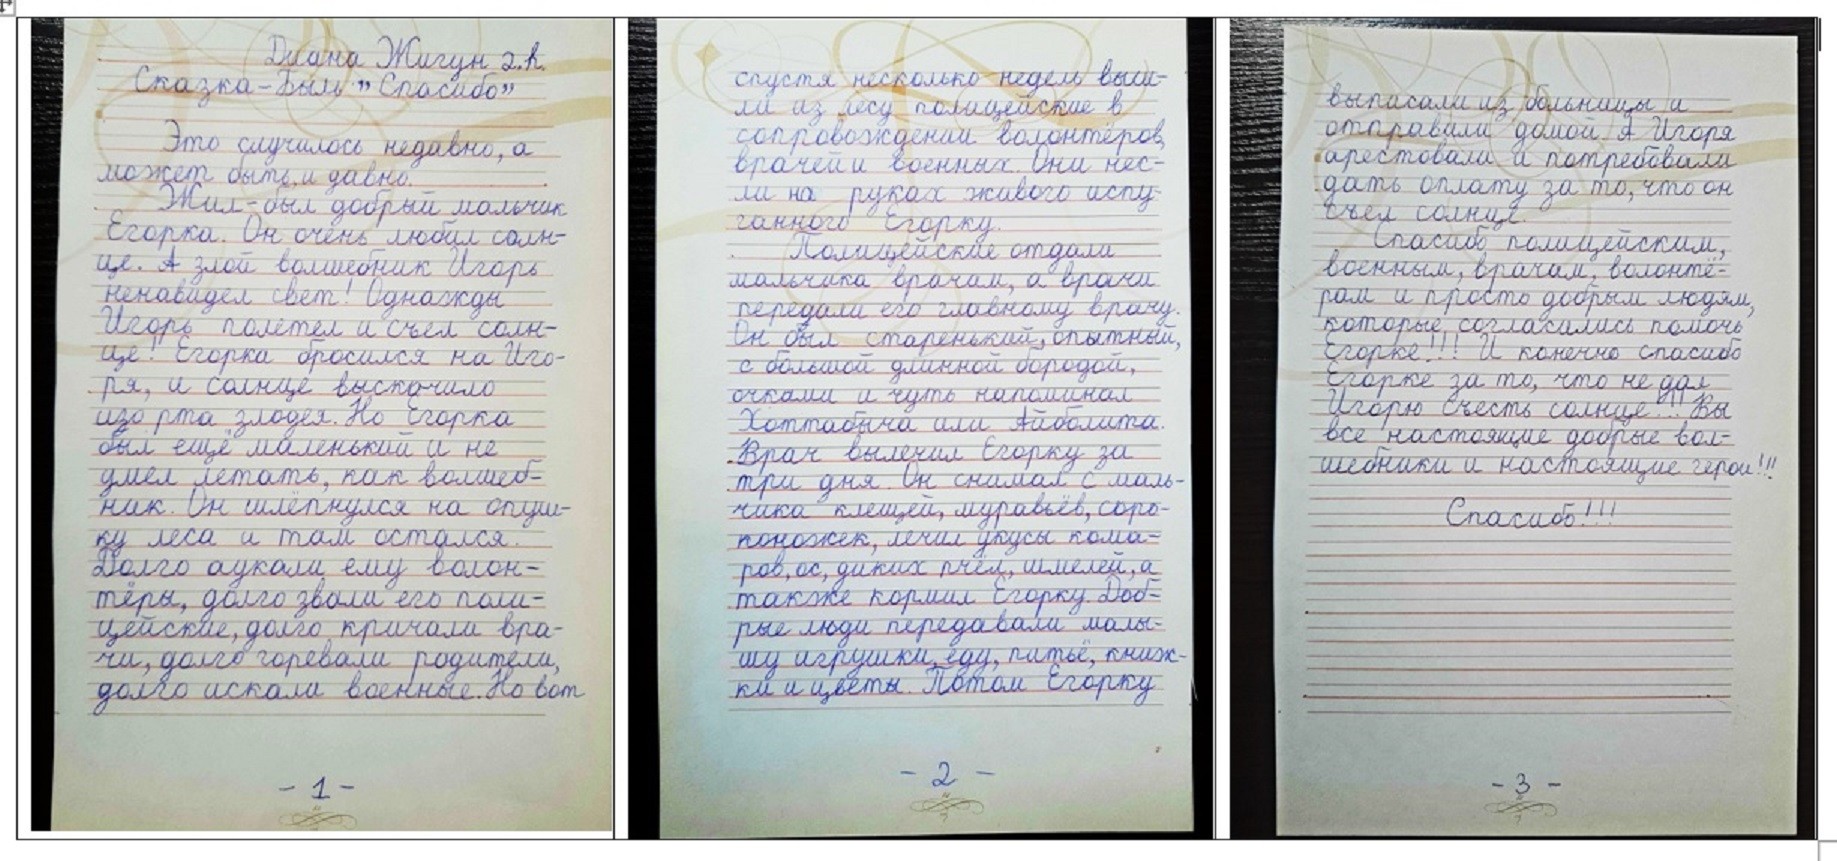 Диана Жигун 2.А
Сказка-Быль "Спасибо"
Это случилось недавно, а
может быть и давно.
Жил-был добрый мальчик
Егорка. Он очень любил солн-
це. А злой волшебник Игорь
ненавидел свет! Однажды
Игорь полетел и съел солн-
це! Егорка бросился на Иго-
ря, и солнце выскочило
изо рта злодея. Но Егорка
был ещё маленький и не
умел летать, как волшеб-
ник. Он шлёпнулся на опуш-
ку леса и там остался.
Долго аукали ему волон-
тёры, долго звали его поли-
цейские, долго кричали вра-
чи, долго горевали родители,
долго искали военные. Но вот
- 1 -
спустя несколько недель выш-
ли из лесу полицейские в
сопровождении волонтёров,
врачей и военных. Они нес-
ли на руках живого испу-
ганного Егорку.
Полицейские отдали
мальчика врачам, а врачи
передали его главному врачу.
Он был старенький, опытный,
с большой длинной бородой,
очками и чуть напоминал
Хоттабыча или Айболита.
Врач вылечил Егорку за
три дня. Он снимал с маль-
чика клещей, муравьёв, соро-
коножек, лечил укусы кома-
ров, ос, диких пчёл, шмелей, а
также кормил Егорку. Доб-
рые люди передавали малы-
шу игрушки, еду, питьё, книж-
ки и цветы. Потом Егорку
- 2 -
выписали из больницы и
отправили домой. А Игоря
арестовали и потребовали
дать оплату за то, что он
съел солнце.
Спасибо полицейским,
военным, врачам, волонтё-
рам и просто добрым людям,
которые согласились помочь
Егорке!!! И конечно спасибо
Егорке за то, что не дал
Игорю съесть солнце!!! Вы
все настоящие добрые вол-
шебники и настоящие герои!!!
Спасибо!!!
- 3 -